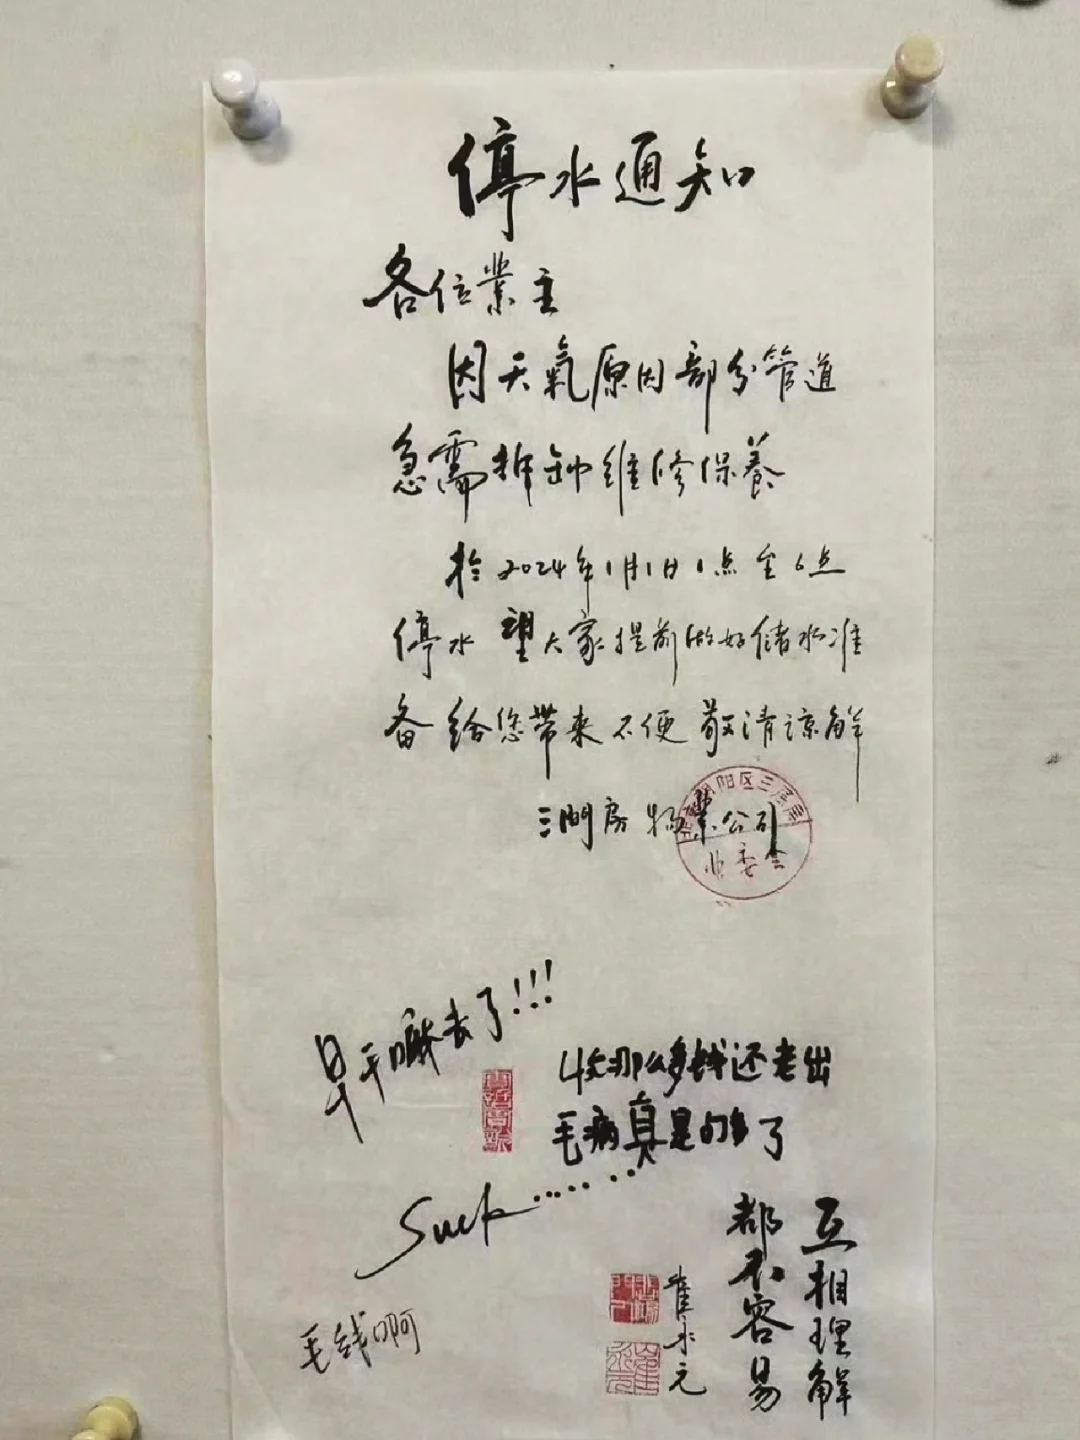 停水通知
各位業主
因天氣原因部分管道
急需拆卸维修保養
於2024年1月1日1点至6点
停水 望大家提前做好储水准
备 给您带来不便 敬清谅解
三間房物業公司
业委会
早干嘛去了!!!
收那么多钱还老出
毛病真是的多了
Suck……
互相理解
都不容易
崔永元
毛线啊